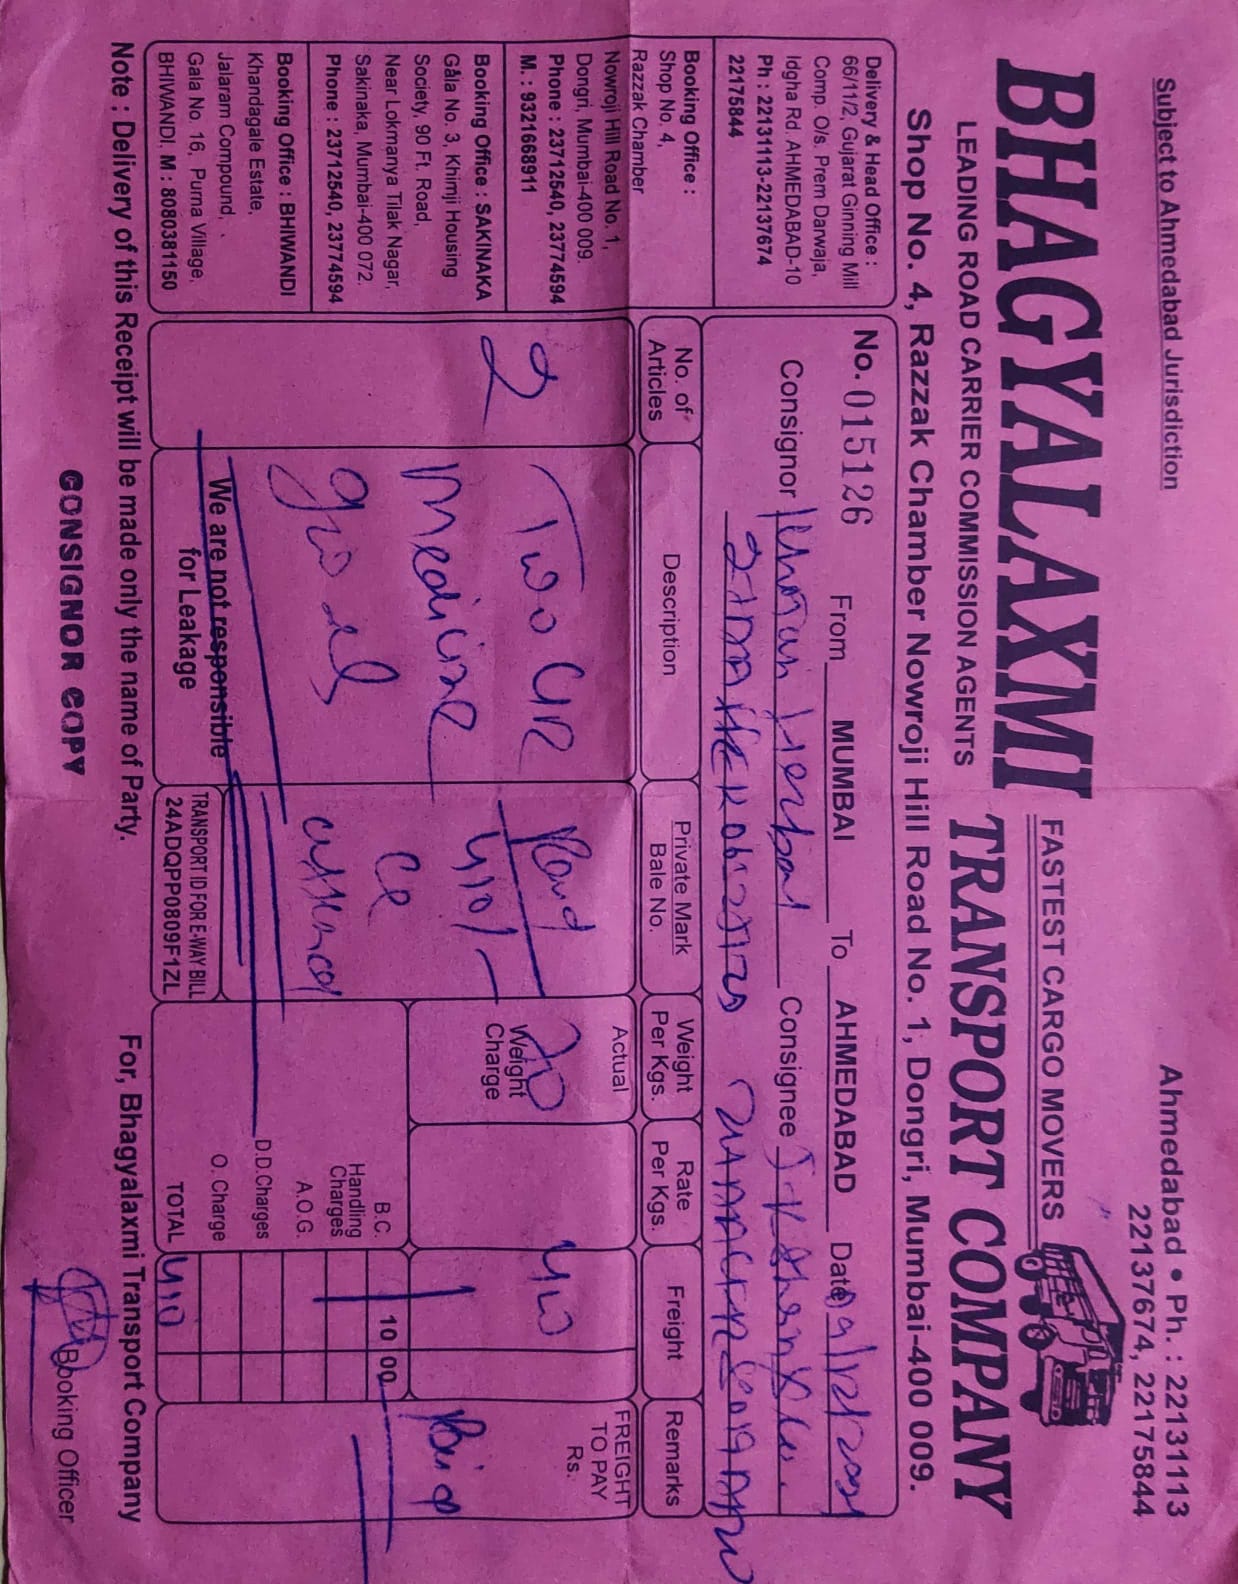 Subject to Ahmedabad Jurisdiction
Ahmedabad • Ph. : 22131113
22137674, 22175844
FASTEST CARGO MOVERS
BHAGYALAXMI TRANSPORT COMPANY
LEADING ROAD CARRIER COMMISSION AGENTS
Shop No. 4, Razzak Chamber Nowroji Hill Road No. 1, Dongri, Mumbai-400 009.
Delivery & Head Office :
66/11/2, Gujarat Ginning Mill
Comp. O/s. Prem Darwaja,
Idgha Rd. AHMEDABAD-10
Ph : 22131113-22137674
22175844
Booking Office :
Shop No. 4,
Razzak Chamber
Nowroji Hill Road No. 1,
Dongri, Mumbai-400 009.
Phone : 23712540, 23774594
M. : 9321668911
Booking Office : SAKINAKA
Gala No. 3, Khimji Housing
Society, 90 Ft. Road,
Near Lokmanya Tilak Nagar,
Sakinaka, Mumbai-400 072.
Phone : 23712540, 23774594
Booking Office : BHIWANDI
Khandagale Estate,
Jalaram Compound,
Gala No. 16, Purna Village,
BHIWANDI. M : 8080381150
No. 015126 From MUMBAI To AHMEDABAD Date
Consignor Herbal Consignee
No. of Articles
Description
Private Mark Bale No.
Weight Per Kgs.
Rate Per Kgs.
Freight
Remarks
2
Two
Medicine
Paid
410/-
Actual
20
Weight Charge
FREIGHT TO PAY Rs.
Paid
B.C. 10 00
Handling Charges
A.O.G.
D.D.Charges
O. Charge
TOTAL 410
We are not responsible
for Leakage
TRANSPORT ID FOR E-WAY BILL
24ADQPP0809F1ZL
Note : Delivery of this Receipt will be made only the name of Party.
For, Bhagyalaxmi Transport Company
CONSIGNOR COPY
Booking Officer